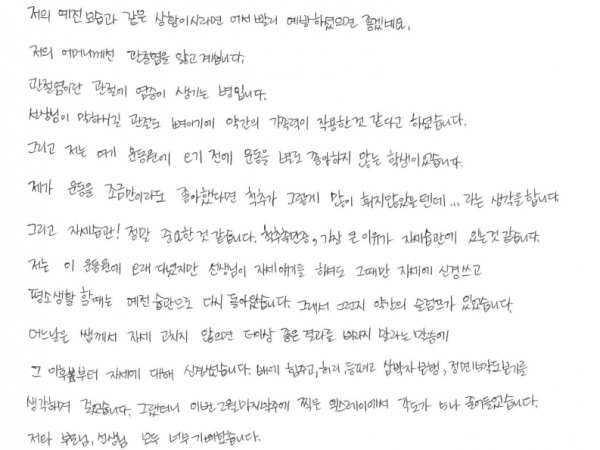 저의 예전모습과 같은 상황이시라면 어서 빨리 예방하셨으면 좋겠네요.
저의 어머니께선 관절염을 앓고계십니다.
관절염이란 관절에 염증이 생기는 병입니다.
선생님이 말하시길 관절도 뼈이기에 약간의 가족력이 작용한것 같다고 하셨습니다.
그리고 저는 여기 운동원에 오기 전에 운동을 별로 좋아하지 않는 학생이었습니다.
제가 운동을 조금만이라도 좋아했다면 척추가 그렇게 많이 휘지않았을텐데... 라는 생각을 합니다
그리고 자세습관! 정말 중요한것 같습니다. 척추측만증, 가장 큰 이유가 자세습관에 있는것 같습니다.
저는 이 운동원에 오래 다녔지만 선생님이 자세얘기를 하셔도 그때만 자세에 신경쓰고
평소생활 할때는 예전 습관으로 다시 돌아왔습니다. 그래서 그런지 약간의 슬럼프가 있었습니다.
어느날은 쌤께서 자세 고치지 않으면 더이상 좋은 결과를 바라지 말라는 말씀에
그 이후부터 자세에 대해 신경썼습니다. 배에 힘주고, 허리, 등펴고 삼박자 보행, 정면15각도보기를
생각하며 걸었습니다. 그랬더니 이번 2월마지막주에 찍은 엑스레이에서 각도가 5나 줄어들었습니다.
저와 부모님, 선생님 모두 너무 기뻐했습니다.